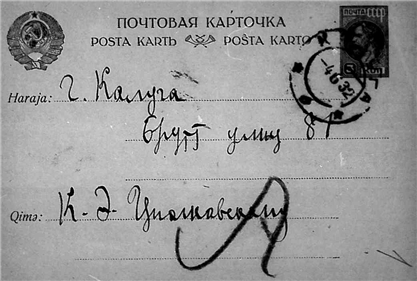 ПОЧТОВАЯ КАРТОЧКА
POSTA KARTЬ POŜTA KARTO
ПОЧТА СССР
КОП
-4 6 32
Haraja: г. Калуга
Брут улиц 81
Qimə: К. Э. Циолковскому